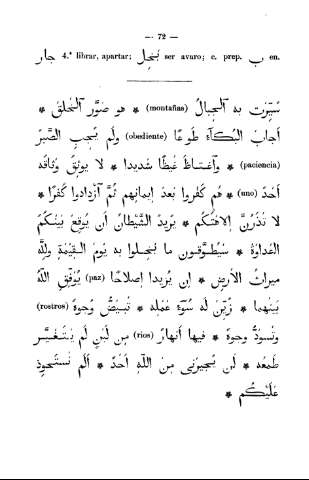 — 72 —
جار 4.ª librar, apartar; بخل ser avaro; c. prep. ب en.
سُيِّرَت به الجبالُ (montañas) * هو صَوَّر الخلق *
أجابَ البُكاء طوعًا (obediente) ولم يُجِب الصَّبْرُ
(paciencia) * واغتاظ غيظًا شديدا * لا يوثِقُ وَثَاقَه
أحَدٌ (uno) * هم كفروا بعد ايمانهم ثُمَّ آزْدادوا كُفرًا *
لا تَذَرُنَّ آلِهَتَكُم * يريد الشَّيْطانُ أن يُوقِعَ بينَكُم
العَداوَةَ * سَيُطَوَّقون ما بَخِلوا به يومَ القِيمَة ولِلّٰه
ميراثُ الأرضِ * ان يُريدا إصلاحًا (paz) يُوَفِّقِ اللهُ
بَيْنَهما * زُيِّنَ له سُوءُ عَمَلِه * تَبْيَضُّ وُجوهٌ (rostros)
وتَسْوَدُّ وجوهٌ * فيها أنهارٌ (rios) مِن لَبَنٍ لم يَتَغَيَّر
طَعْمُه * لن يُجيرَنى مِن اللهِ أحَدٌ * ألم نَستَحْوِذ
عَلَيْكُم *